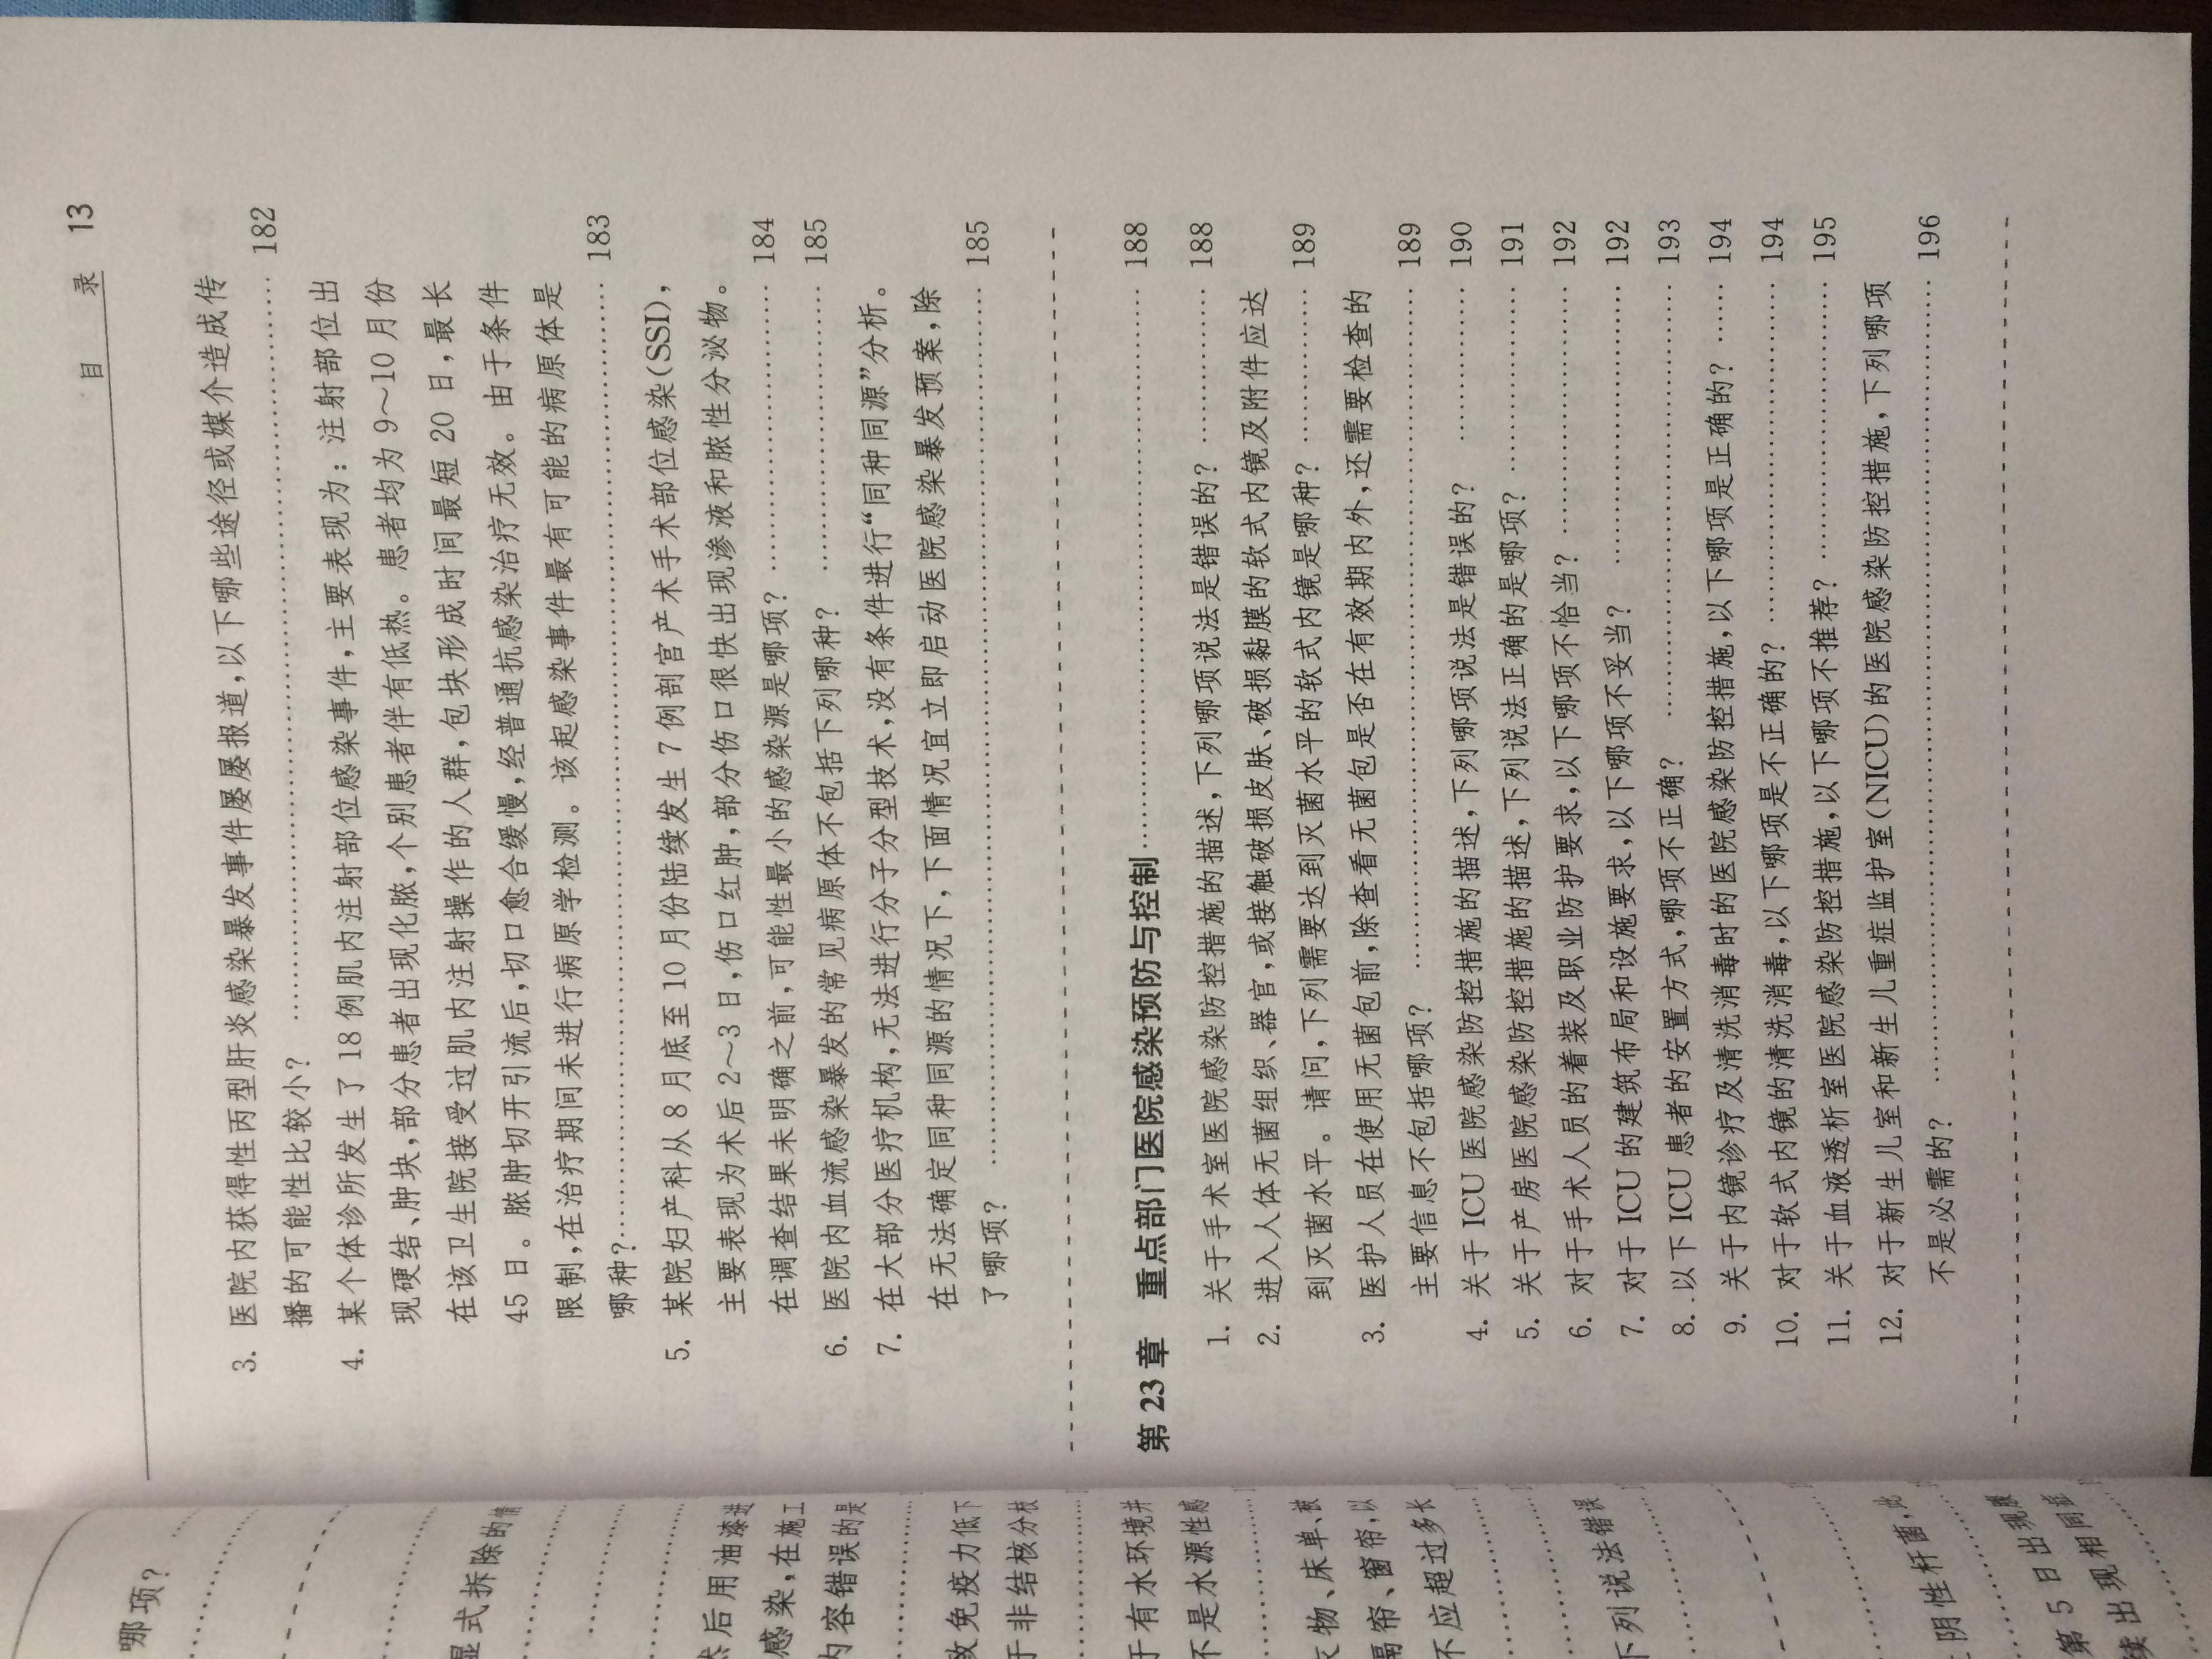 目 录 13
3. 医院内获得性丙型肝炎感染暴发事件屡屡报道,以下哪些途径或媒介造成传
播的可能性比较小? …… 182
4. 某个体诊所发生了 18 例肌内注射部位感染事件,主要表现为:注射部位出
现硬结、肿块,部分患者出现化脓,个别患者伴有低热。患者均为 9～10 月份
在该卫生院接受过肌内注射操作的人群,包块形成时间最短 20 日,最长
45 日。脓肿切开引流后,切口愈合缓慢,经普通抗感染治疗无效。由于条件
限制,在治疗期间未进行病原学检测。该起感染事件最有可能的病原体是
哪种? …… 183
5. 某院妇产科从 8 月底至 10 月份陆续发生 7 例剖宫产术手术部位感染(SSI),
主要表现为术后 2～3 日,伤口红肿,部分伤口很快出现渗液和脓性分泌物。
在调查结果未明确之前,可能性最小的感染源是哪项? …… 184
6. 医院内血流感染暴发的常见病原体不包括下列哪种? …… 185
7. 在大部分医疗机构,无法进行分子分型技术,没有条件进行“同种同源”分析。
在无法确定同种同源的情况下,下面情况宜立即启动医院感染暴发预案,除
了哪项? …… 185
第 23 章 重点部门医院感染预防与控制 …… 188
1. 关于手术室医院感染防控措施的描述,下列哪项说法是错误的? …… 188
2. 进入人体无菌组织、器官,或接触破损皮肤、破损黏膜的软式内镜及附件应达
到灭菌水平。请问,下列需要达到灭菌水平的软式内镜是哪种? …… 189
3. 医护人员在使用无菌包前,除查看无菌包是否在有效期内外,还需要检查的
主要信息不包括哪项? …… 189
4. 关于 ICU 医院感染防控措施的描述,下列哪项说法是错误的? …… 190
5. 关于产房医院感染防控措施的描述,下列说法正确的是哪项? …… 191
6. 对于手术人员的着装及职业防护要求,以下哪项不恰当? …… 192
7. 对于 ICU 的建筑布局和设施要求,以下哪项不妥当? …… 192
8. 以下 ICU 患者的安置方式,哪项不正确? …… 193
9. 关于内镜诊疗及清洗消毒时的医院感染防控措施,以下哪项是正确的? …… 194
10. 对于软式内镜的清洗消毒,以下哪项是不正确的? …… 194
11. 关于血液透析室医院感染防控措施,以下哪项不推荐? …… 195
12. 对于新生儿室和新生儿重症监护室(NICU)的医院感染防控措施,下列哪项
不是必需的? …… 196
哪项?
显式拆除的情
然后用油漆进
感染,在施工
内容错误的是
致免疫力低下
于非结核分枝
于有水环境并
不是水源性感
衣物、床单、被
隔帘、窗帘,以
不应超过多长
下列说法错误
阴性杆菌,此
第 5 日出现腹
续出现相同